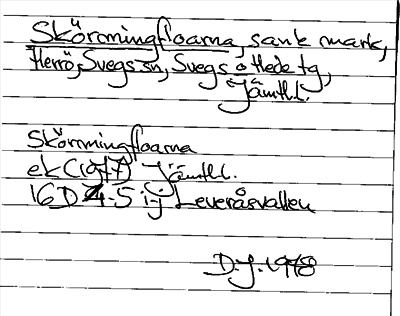 Skörömingfloarna, sank mark,
Herrö, Svegs sn, Svegs o Hede tg,
Jämtl.l.
Skörömingfloarna
ek (1977) Jämtl.l.
16D 4-5 i-j Leveråsvallen
D.J. 1978